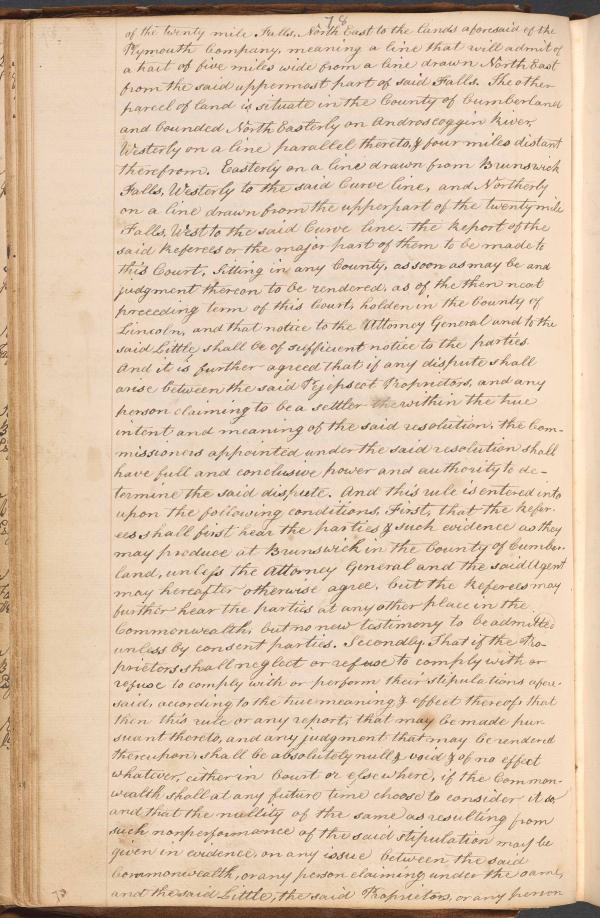 78
of the twenty mile Falls, North East to the lands aforesaid of the
Plymouth Company, meaning a line that will admit of
a trait of five miles wide from a line drawn North East
from the said uppermost part of said Falls. The other
parcel of land is situate in the County of Cumberland
and bounded North Easterly on Androscoggin River,
Westerly on a line parallel thereto, & four miles distant
therefrom. Easterly on a line drawn from Brunswick
Falls, Westerly to the said Curve line, and Northerly
on a line drawn from the upper part of the twenty mile
Falls, West to the said Curve line. the Report of the
said Referees or the major part of them to be made to
this Court, Sitting in any County, as soon as may be and
judgment thereon to be rendered, as of the then next
preceeding term of this Court, holden in the County of
Lincoln, and that notice to the Attorney General and to the
said Little shall be of sufficient notice to the parties.
And it is further agreed that if any dispute shall
arise between the said Pejepscot Proprietors, and any
person claiming to be a settler the within the true
intent and meaning of the said resolution, the Com-
missioners appointed under the said resolution shall
have full and conclusive power and authority to de-
termine the said dispute. And this rule is entered into
upon the following conditions, First, that the Refer-
ees shall first hear the parties & such evidence as they
may produce at Brunswick in the County of Cumber-
land, unless the Attorney General and the said Agent
may hereafter otherwise agree, but the Referees may
further hear the parties at any other place in the
Commonwealth, but no new testimony to be admitted
unless by consent parties. Secondly, That if the Pro-
prietors shall neglect or refuse to comply with or
refuse to comply with or perform their stipulations afore-
said, according to the true meaning & effect thereof, that
then this rule or any report, that may be made pur
suant thereto, and any judgment that may be rendered
thereupon, shall be absolutely null & void & of no effect
whatever, either in Court or elsewhere, if the Common-
wealth shall at any future time choose to consider it so,
and that the nullity of the same as resulting from
such nonperformance of the said stipulation may be
given in evidence, on any issue between the said
Commonwealth, or any person claiming under the same,
and the said Little, the said Proprietors, or any person